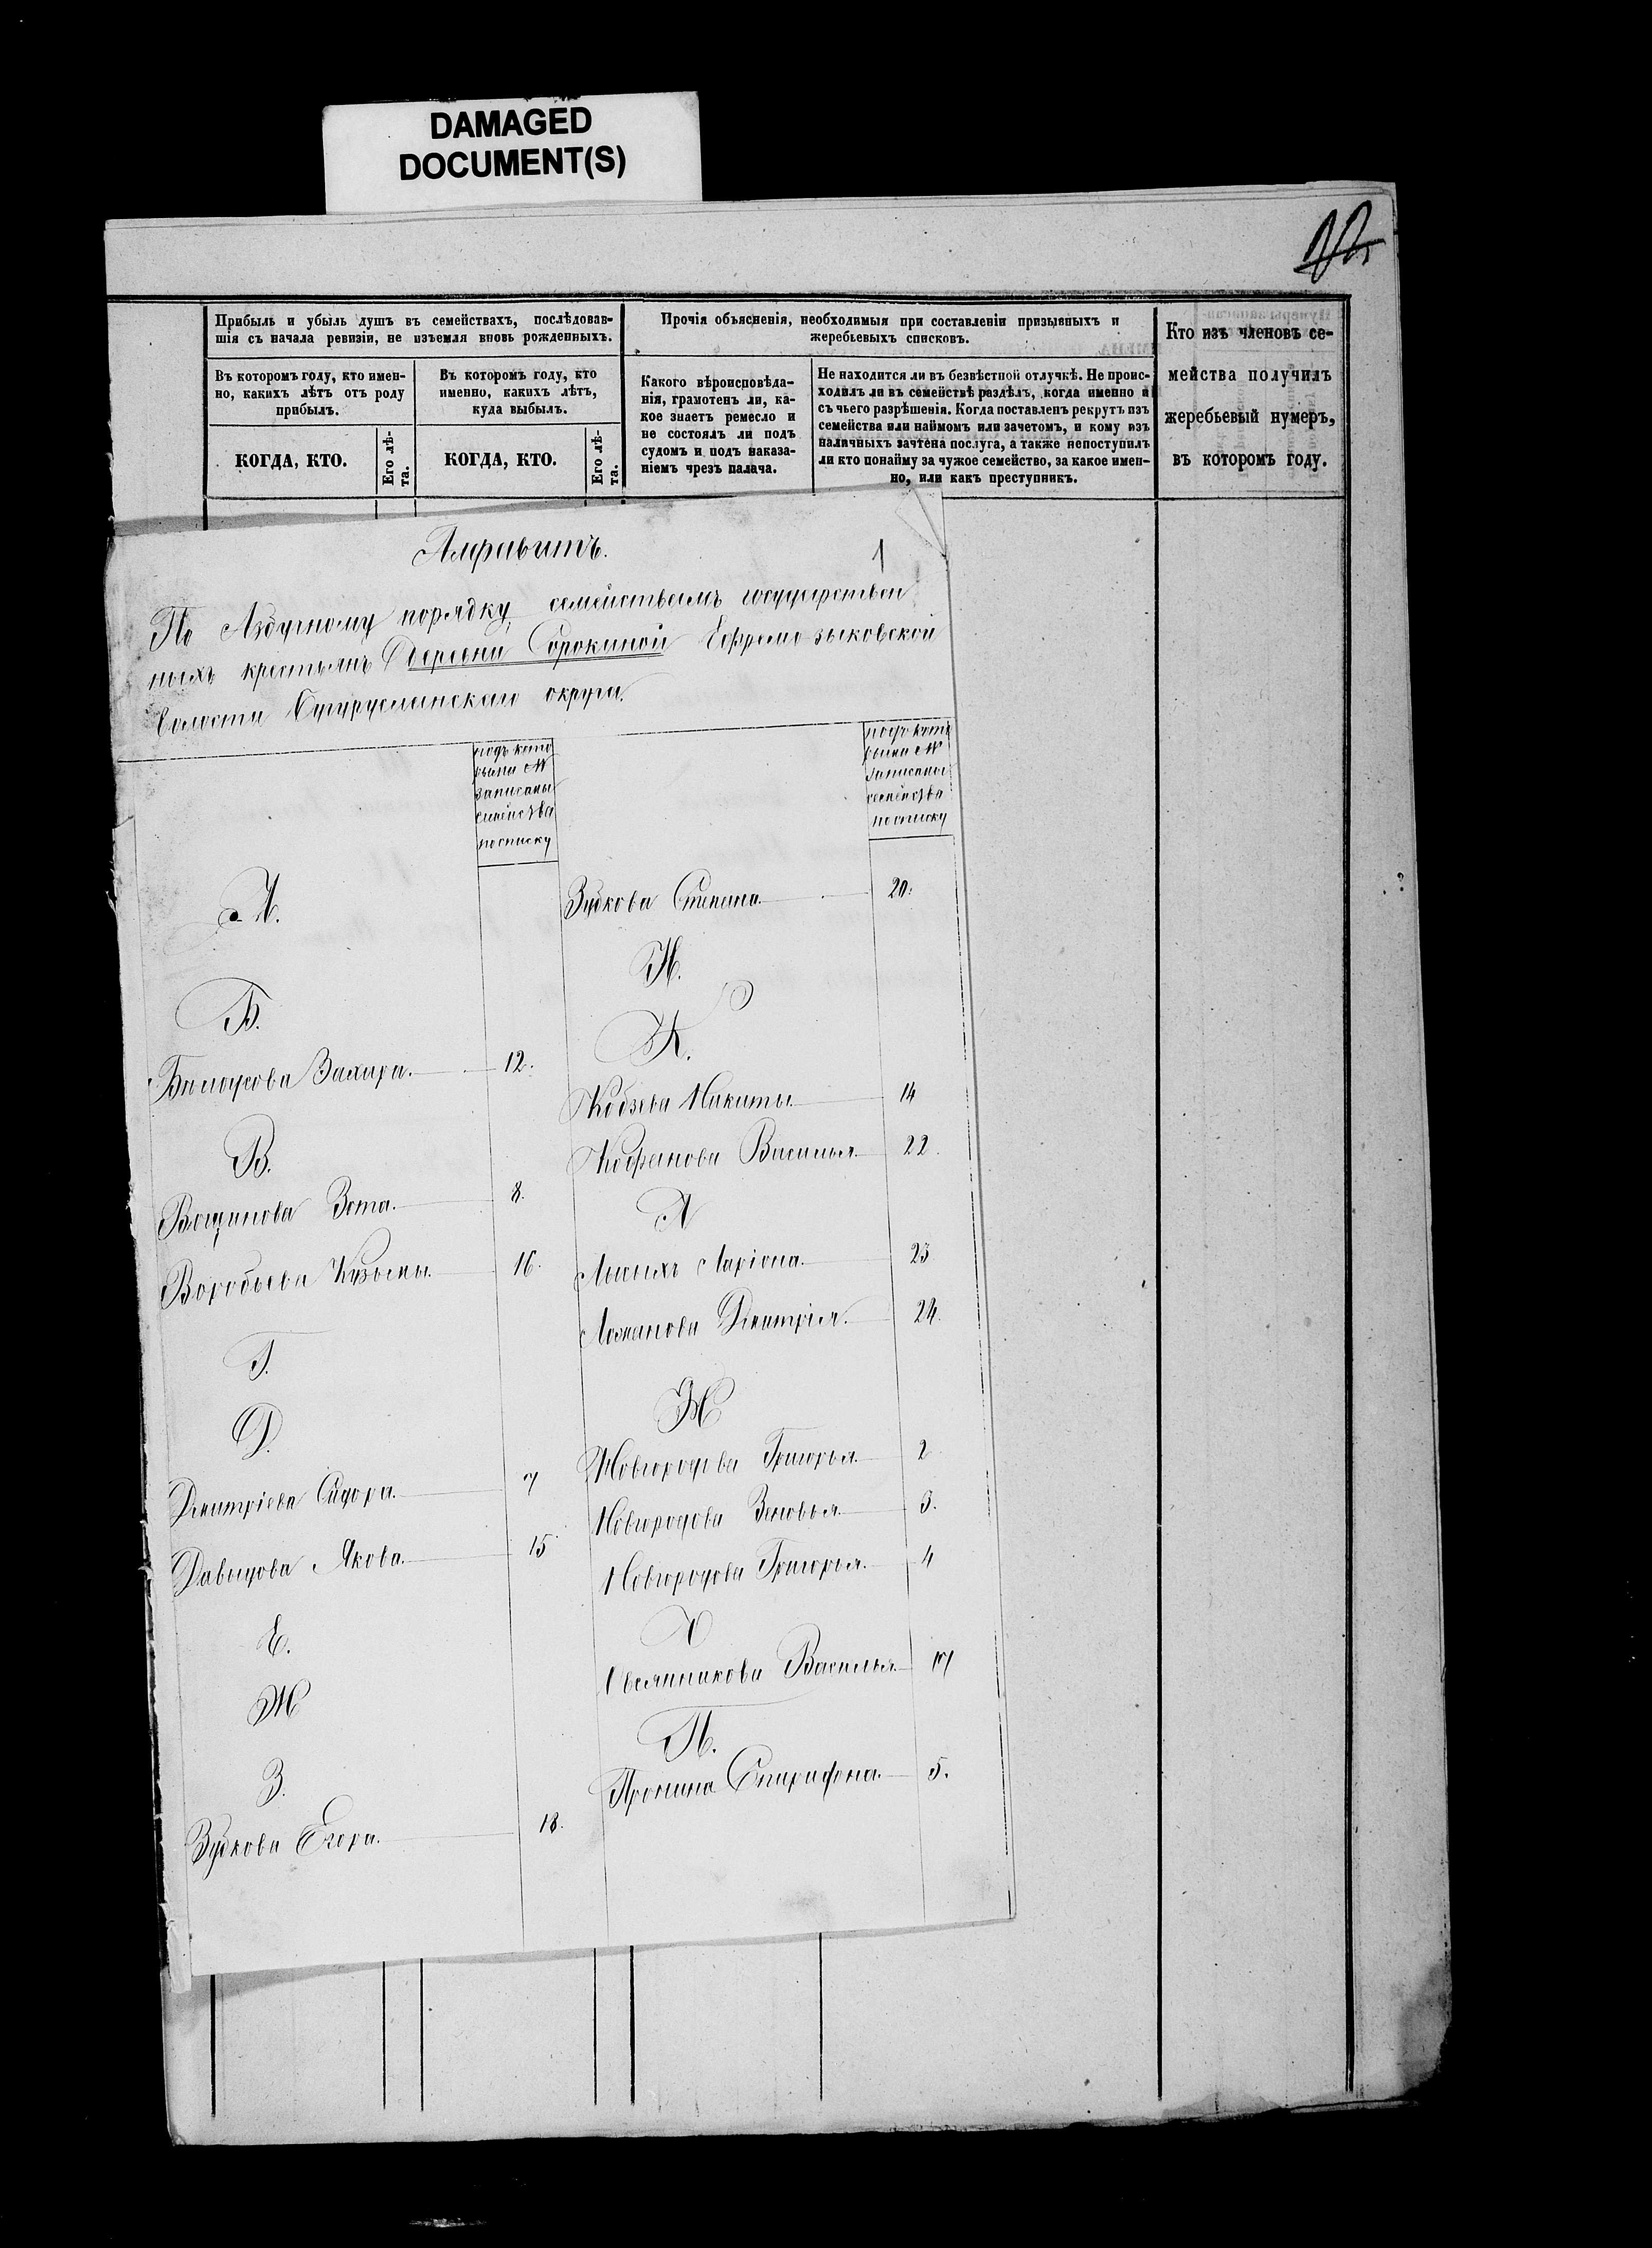 DAMAGED
DOCUMENT(S)
Прибыль и убыль душъ въ семействахъ, послѣдовав-
шія съ начала ревизіи, не изъемля вновь рожденныхъ.
Въ которомъ году, кто имен-
но, какихъ лѣтъ отъ роду
прибылъ.
КОГДА, КТО.
Его лѣ-
та.
Въ которомъ году, кто
именно, какихъ лѣтъ,
куда выбылъ.
КОГДА, КТО.
Его лѣ-
та.
Прочія объясненія, необходимыя при составленіи призывныхъ и
жеребьевыхъ списковъ.
Какого вѣроисповѣда-
нія, грамотенъ ли, ка-
кое знаетъ ремесло и
не состоялъ ли подъ
судомъ и подъ наказа-
ніемъ чрезъ палача.
Не находится ли въ безвѣстной отлучкѣ. Не проис-
ходилъ ли въ семействѣ раздѣлъ, когда именно и
съ чьего разрѣшенія. Когда поставленъ рекрутъ изъ
семейства или наймомъ или зачетомъ, и кому изъ
наличныхъ зачтена послуга, а также непоступилъ
ли кто понайму за чужое семейство, за какое имен-
но, или какъ преступникъ.
Кто изъ членовъ се-
мейства получилъ
жеребьевый нумеръ,
въ которомъ году.
Алфавитъ.
1
По Азбучному порядку семействамъ государствен
ныхъ крестьянъ Деревни Сорокиной Ефремо-зыковской
волости Бугурусланскаго округа.
подъ кото
рыми №
записаны
семейства
посписку
А.
Б.
Бѣлоусова Захара. 12.
В.
Вощинова Зота. 8.
Воробьева Кузьмы. 16.
Г.
Д.
Дмитріева Сидора. 7
Давыдова Якова. 15
Е.
Ж
З.
Зубкова Егора. 18.
подъ кото
рыми №
записаны
семейства
посписку
Зубкова Степана. 20.
И.
К.
Кобзева Никиты. 14
Василья. 22.
Л
Лысыхъ Ларіона. 23
Ломанова Дмитрія. 24.
Н
Новгородова Григорья. 2
Новгородова Зеновья. 3.
Новгородова Григорья. 4
О
Овсянникова Василья.
П.
Пронина Спиридона. 5.